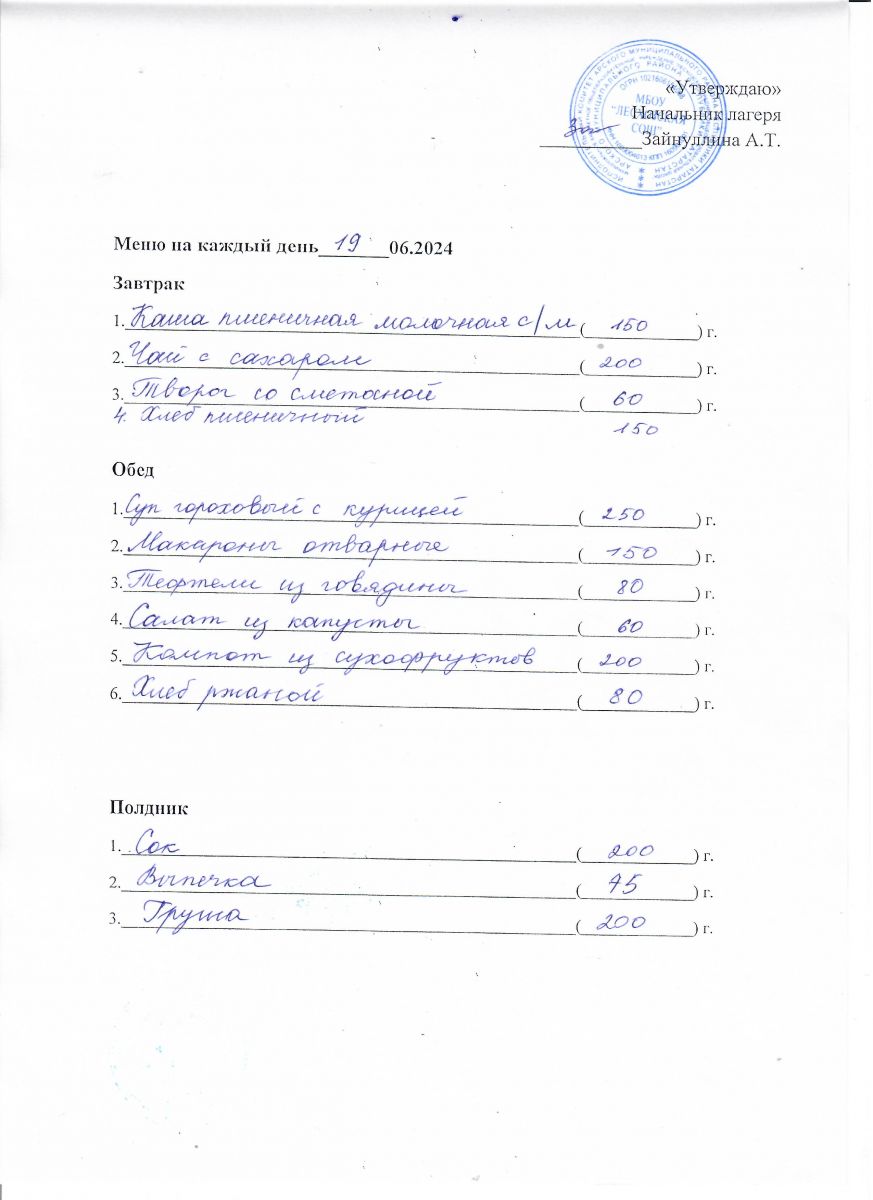 «Утверждаю»
Начальник лагеря
Зайнуллина А.Т.
МБОУ
СОШ"
Меню на каждый день 19 06.2024
Завтрак
1. Каша пшеничная молочная с/м ( 150 ) г.
2. Чай с сахаром ( 200 ) г.
3. Творог со сметаной ( 60 ) г.
4. Хлеб пшеничный 150
Обед
1. Суп гороховый с курицей ( 250 ) г.
2. Макароны отварные ( 150 ) г.
3. Тефтели из говядины ( 80 ) г.
4. Салат из капусты ( 60 ) г.
5. Компот из сухофруктов ( 200 ) г.
6. Хлеб ржаной ( 80 ) г.
Полдник
1. Сок ( 200 ) г.
2. Выпечка ( 75 ) г.
3. Груша ( 200 ) г.